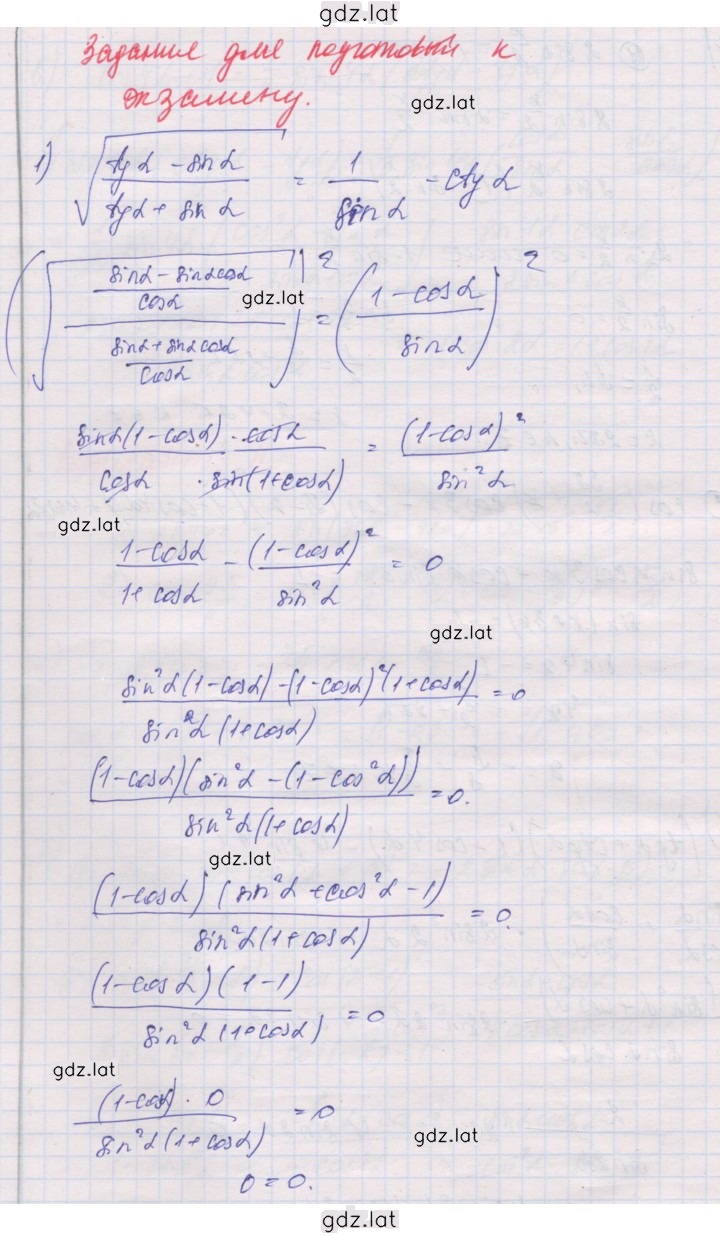 gdz.lat
Задания для подготовки к
экзамену.
gdz.lat
1) √((tgα - sinα)/(tgα + sinα)) = 1/sinα - ctgα
(√(((sinα - sinαcosα)/cosα)/((sinα + sinαcosα)/cosα)))² = ((1 - cosα)/sinα)²
gdz.lat
(sinα(1 - cosα) · cosα)/(cosα · sin(1 + cosα)) = (1 - cosα)²/sin²α
gdz.lat
(1 - cosα)/(1 + cosα) - (1 - cosα)²/sin²α = 0
gdz.lat
(sin²α(1 - cosα) - (1 - cosα)²(1 + cosα))/(sin²α(1 + cosα)) = 0
((1 - cosα)(sin²α - (1 - cos²α)))/(sin²α(1 + cosα)) = 0.
gdz.lat
((1 - cosα)(sin²α + cos²α - 1))/(sin²α(1 + cosα)) = 0.
((1 - cosα)(1 - 1))/(sin²α(1 + cosα)) = 0
gdz.lat
((1 - cosα) · 0)/(sin²α(1 + cosα)) = 0
gdz.lat
0 = 0.
gdz.lat